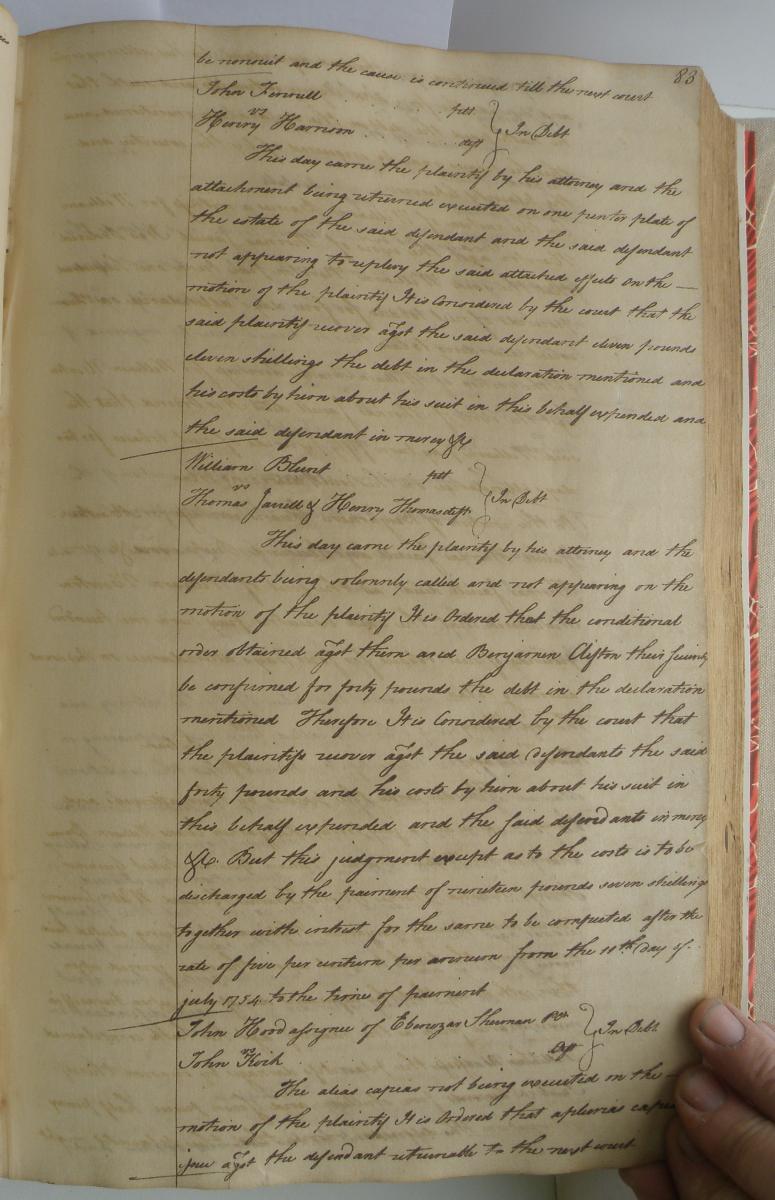 83
be nonsuit and the cause is continued till the next court
John Ferrell pltf
vs In Debt
Henry Harrison deft
This day came the plaintif by his attorney and the
attachment being returned executed on one pewter plate of
the estate of the said defendant and the said defendant
not appearing to replevy the said attached effects On the —
motion of the plaintif It is Considered by the court that the
said plaintif recover agst the said defendant eleven pounds
eleven shillings the debt in the declaration mentioned and
his costs by him about his suit in this behalf expended and
the said defendant in mercy &c
William Blunt pltf
vs In Debt
Thomas Jarrell & Henry Thomas deft
This day came the plaintif by his attorney and the
defendants being solemnly called and not appearing on the
motion of the plaintif It is Ordered that the conditional
order obtained agst them and Benjamen Clifton their Security
be confirmed for forty pounds the debt in the declaration
mentioned Therefore It is Considered by the court that
the plaintifs recover agst the said defendants the said
forty pounds and his costs by him about his suit in
this behalf expended and the said defendants in mercy
&c. But this judgment except as to the costs is to be
discharged by the paiment of nineteen pounds seven shillings
together with intrest for the same to be computed after the
rate of five per centum per annum from the 10th day of
july 1754 to the time of paiment
John Hood assignee of Ebenezar Sherman
vs In Debt
John
The alias capias not being executed on the —
motion of the plaintif It is Ordered that a plurias capias
issue agst the defendant returnable to the next court